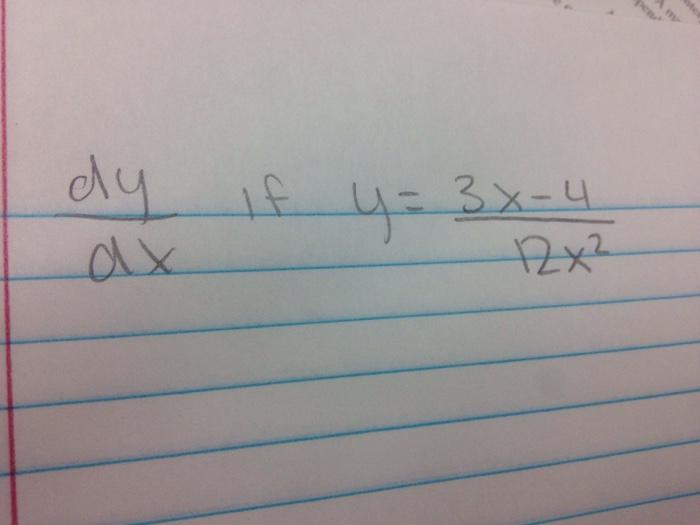 dy/dx if y = (3x-4)/(12x²)